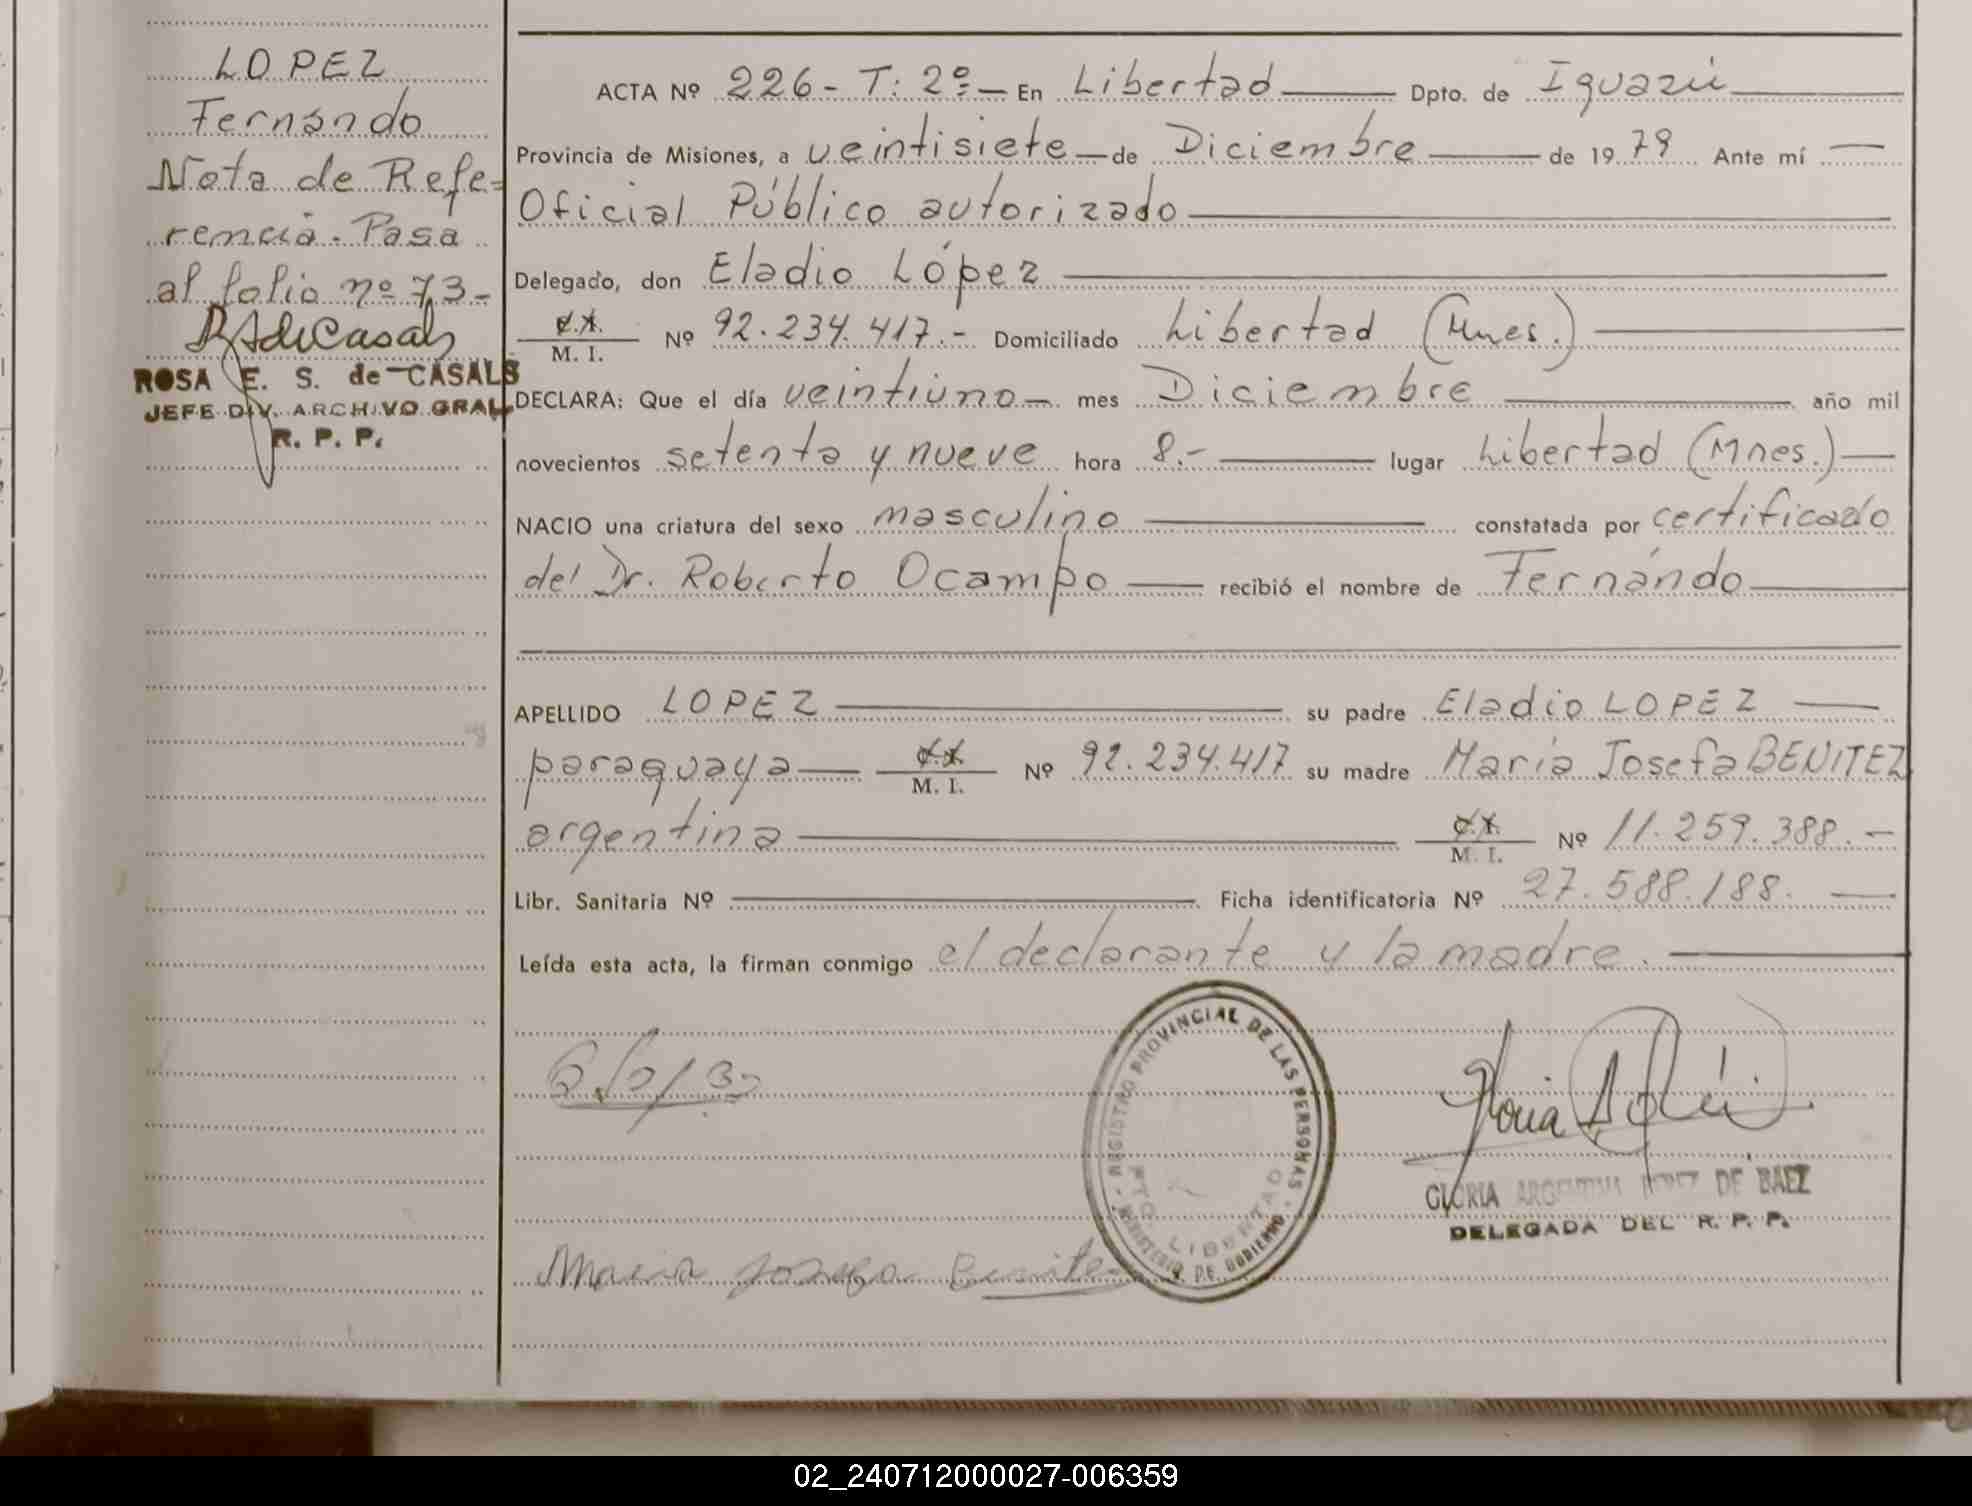 LOPEZ
Fernándo
Nota de Refe=
rencia. Pasa
al folio nº 73-
ROSA E. S. de CASALS
JEFE DIV. ARCHIVO GRAL.
R. P. P.
ACTA Nº 226- T: 2º- En Libertad Dpto. de Iguazú
Provincia de Misiones, a veintisiete de Diciembre de 1979 Ante mí
Oficial Público autorizado
Delegado, don Eladio López
C.I. M. I. Nº 92.234.417.- Domiciliado Libertad (Mnes.)
DECLARA: Que el día veintiuno mes Diciembre año mil
novecientos setenta y nueve hora 8.- lugar Libertad (Mnes.)
NACIO una criatura del sexo masculino constatada por certificado
del Dr. Roberto Ocampo recibió el nombre de Fernándo
APELLIDO LOPEZ su padre Eladio LOPEZ
paraguaya C.I. M. I. Nº 92.234.417 su madre María Josefa BENITEZ
argentina C.I. M. I. Nº 11.259.388.-
Libr. Sanitaria Nº Ficha identificatoria Nº 27.588.188.
Leída esta acta, la firman conmigo el declarante y la madre.
REGISTRO PROVINCIAL DE LAS PERSONAS
MINISTERIO DE GOBIERNO
LIBERTAD
GLORIA ARGENTINA DE BAEZ
DELEGADA DEL R. P. P.
Maria Benite
02_240712000027-006359